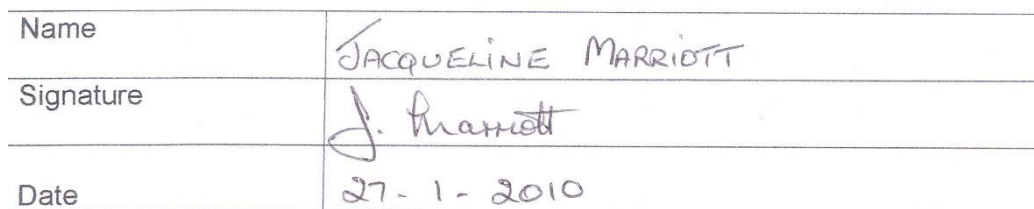 Name JACQUELINE MARRIOTT
Signature J. Marriott
Date 27-1-2010